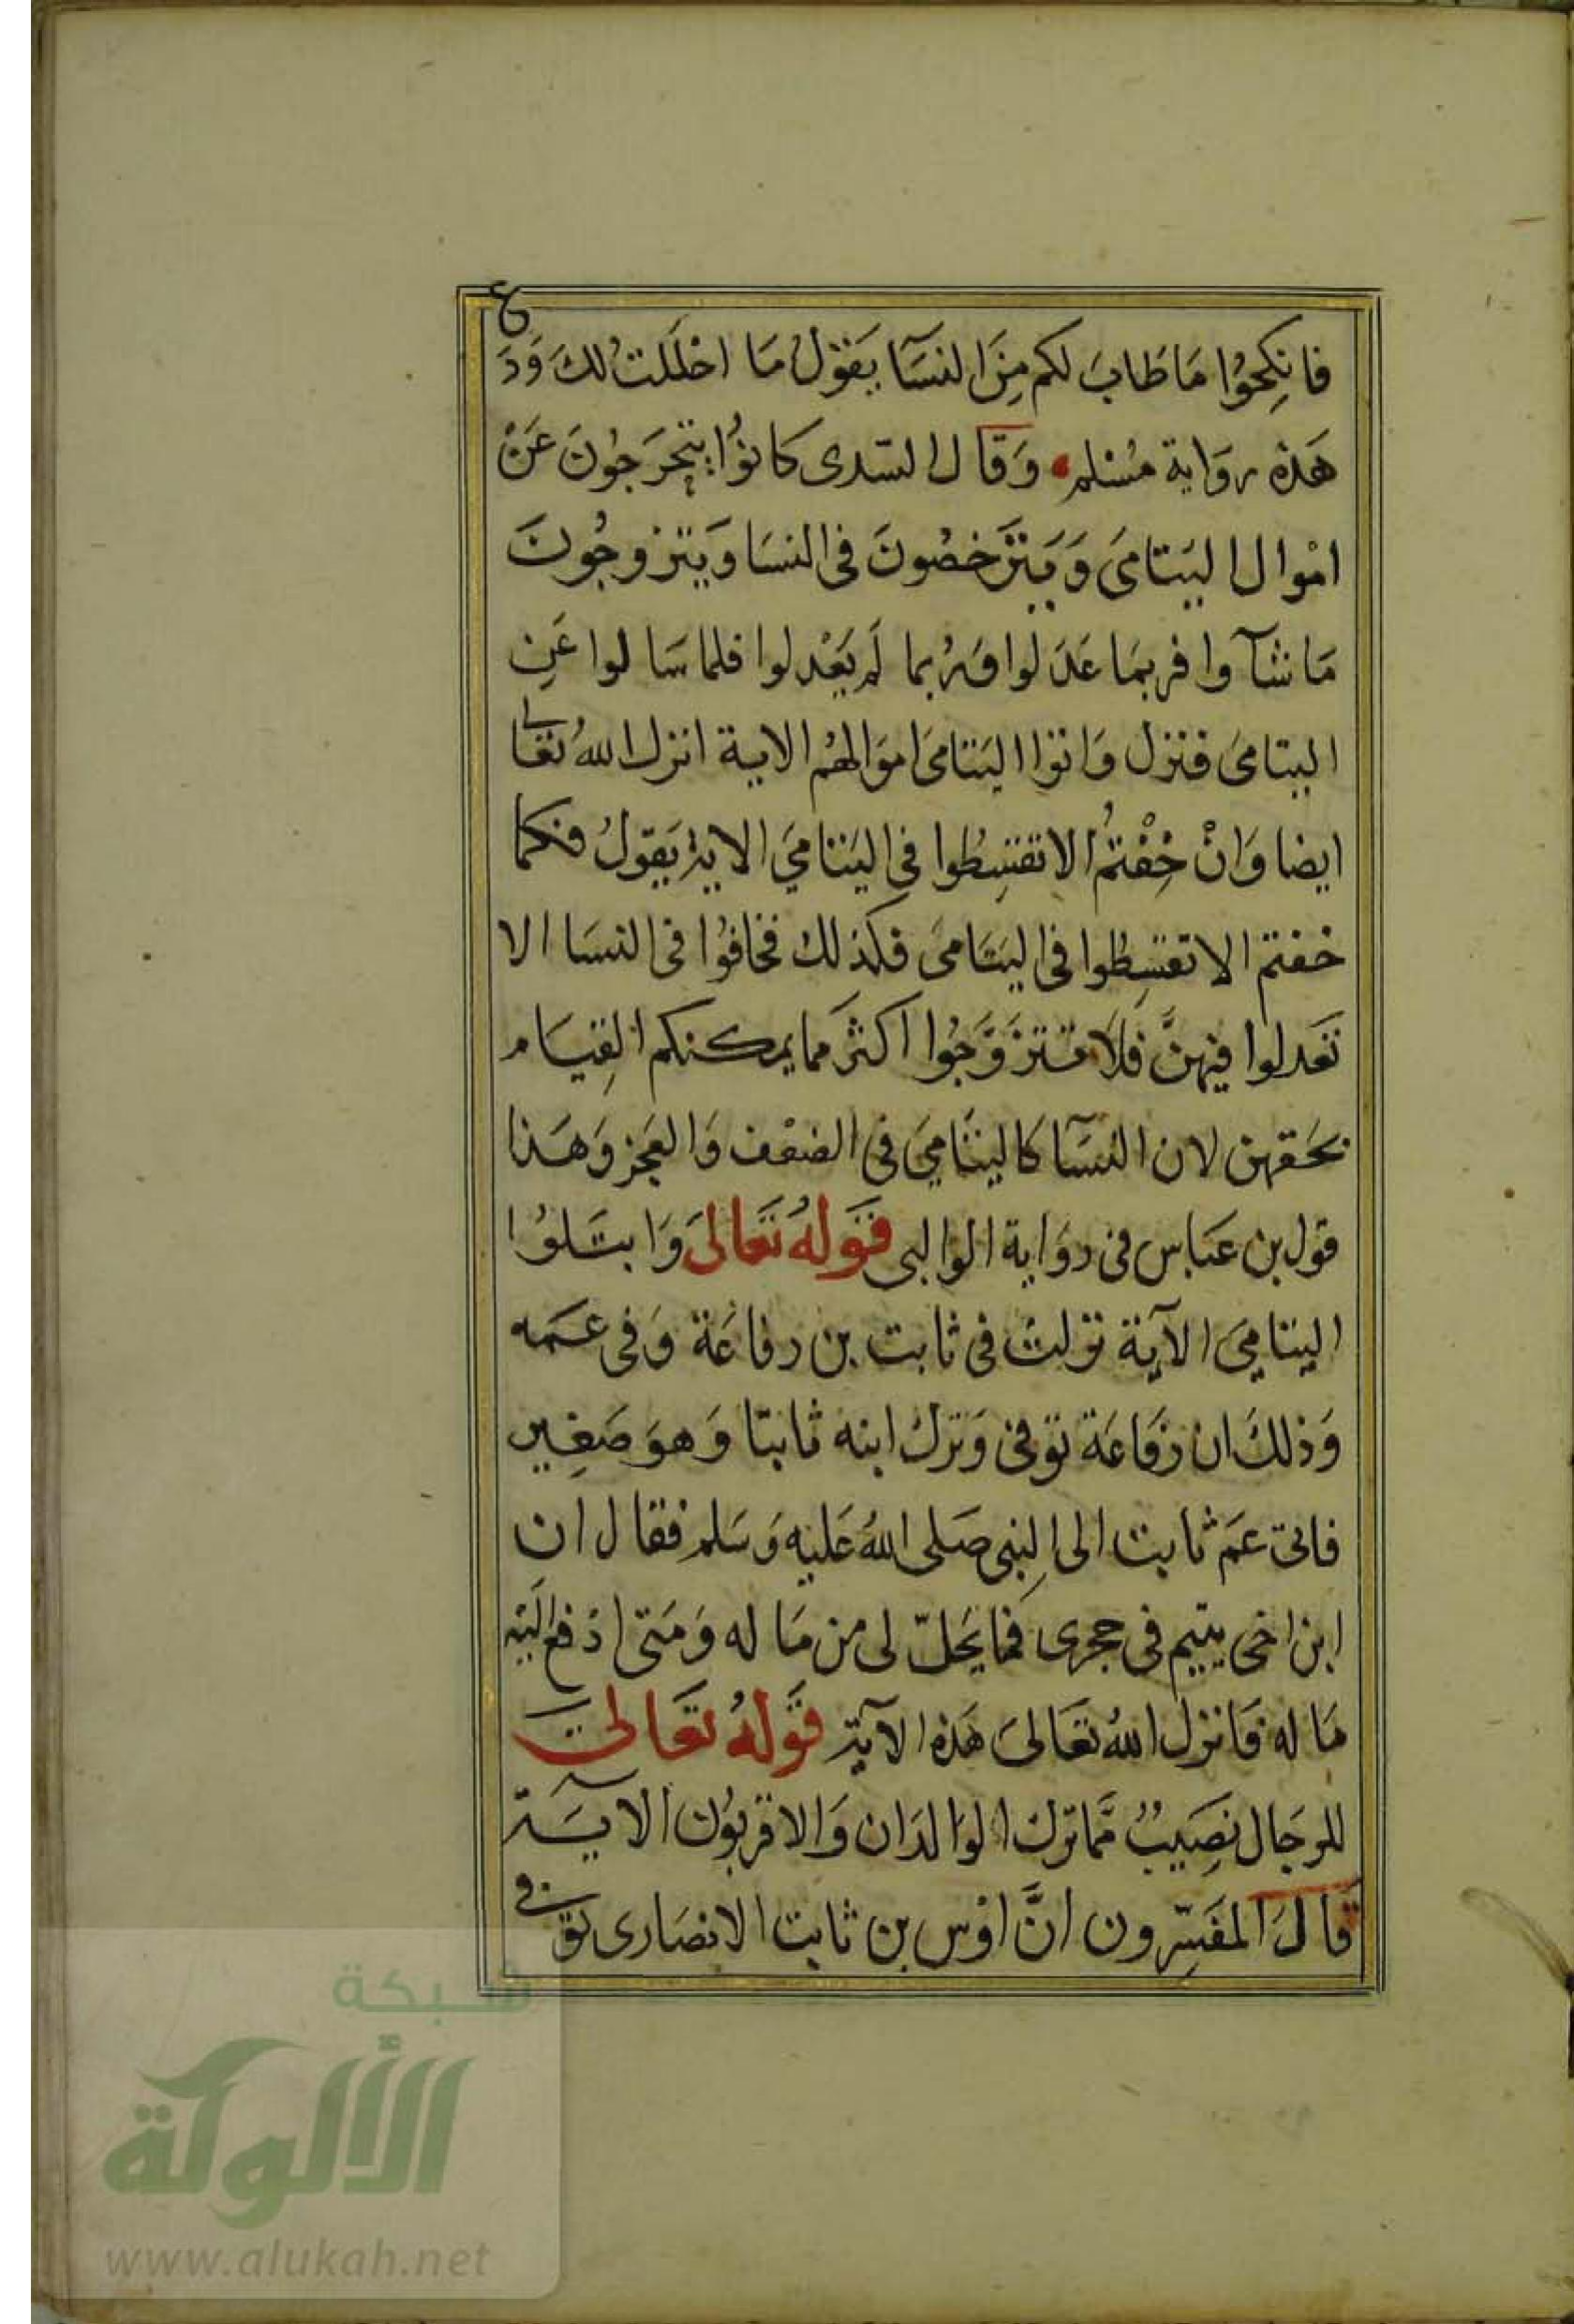 فَانكِحُوا مَا طَابَ لكم مِنَ النسَآ يَقوْلُ مَا احْلَلتُ لك وَدَع
هَذه روَاية مُسْلم وَقَال السّدى كانوُا يتحَرجُونَ عَنْ
امْوال اليَتامىَ وَيَترَخصُونَ فى النسَا وَيتزوجُونَ
مَا شآوا فربمَا عَدَلوا وَربما لَم يَعْدلوا فلما سَالوا عَنِ
اليتامىَ فنزل وَاتوا اليَتَامىَ اموَالهُم الاية انزل اللهُ تعَالى
ايضا وَانْ خِفْتُمْ الا تقسِطُوا فى اليَتامىَ الاية يَقوَلُ فكما
خفتم الا تقسِطُوا فى اليَتَامىَ فكذلك فخافوُا فى النسَا الا
تَعَدلوا فيهنَّ فلَا تتزَوَّجُوا اكثرَ مما يمكنكم القِيَام
بحَقهن لان النسَآ كاليَتَامىَ فى الضعْف وَالعَجز وَهَذا
قول بن عَبَاس فى روَاية الوالبى قَوَلهُ تَعَالىَ وَابتَلوُا
اليتَامىَ الآيَة نزلتْ فى ثابت بن رفاعَة وَفى عَمه
وَذلكَ ان رفَاعَة توَفى وَترَك ابنه ثابتا وَهوَ صَغِير
فاتى عَمَ ثابت الى النِبى صَلى اللهُ عَليه وَسَلم فقال ان
ابن اخى يتيم فى حجرى فما يَحَلّ لى من مَاله وَمَتى ادْفع اليْه
مَاله فَانزل اللهُ تعَالىَ هَذه الآية قَولهُ تعَالىَ
للرجَال نصَيبٌ مّما ترَك الوَالدَان وَالاقربوُن الآيَة
قَالَ المفَسِّرون انَّ اوْس بن ثابت الانصَارى توفى
شبكة
الألوكة
www.alukah.net